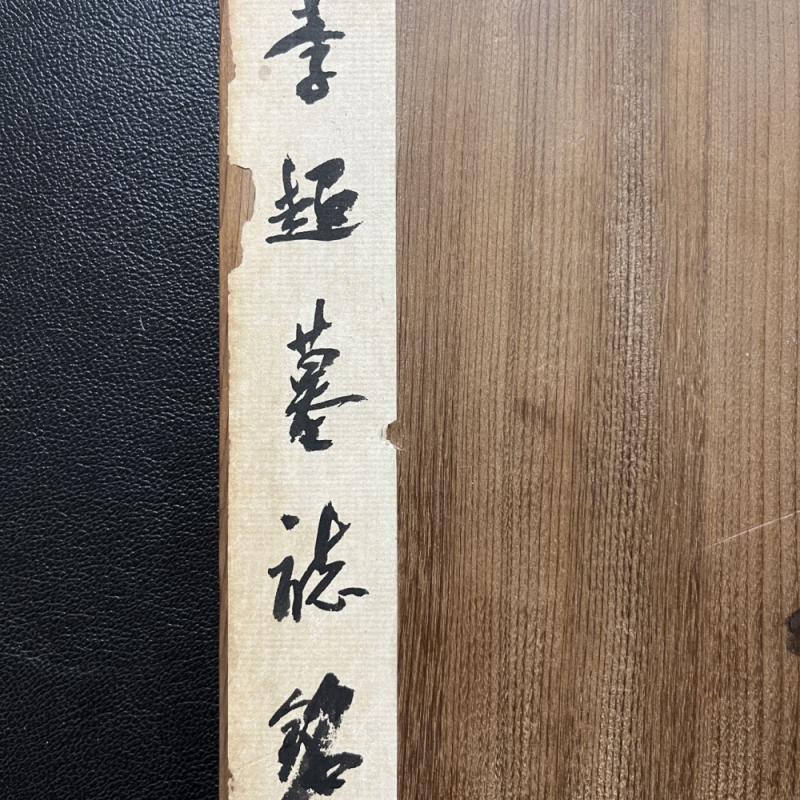 李超墓誌銘